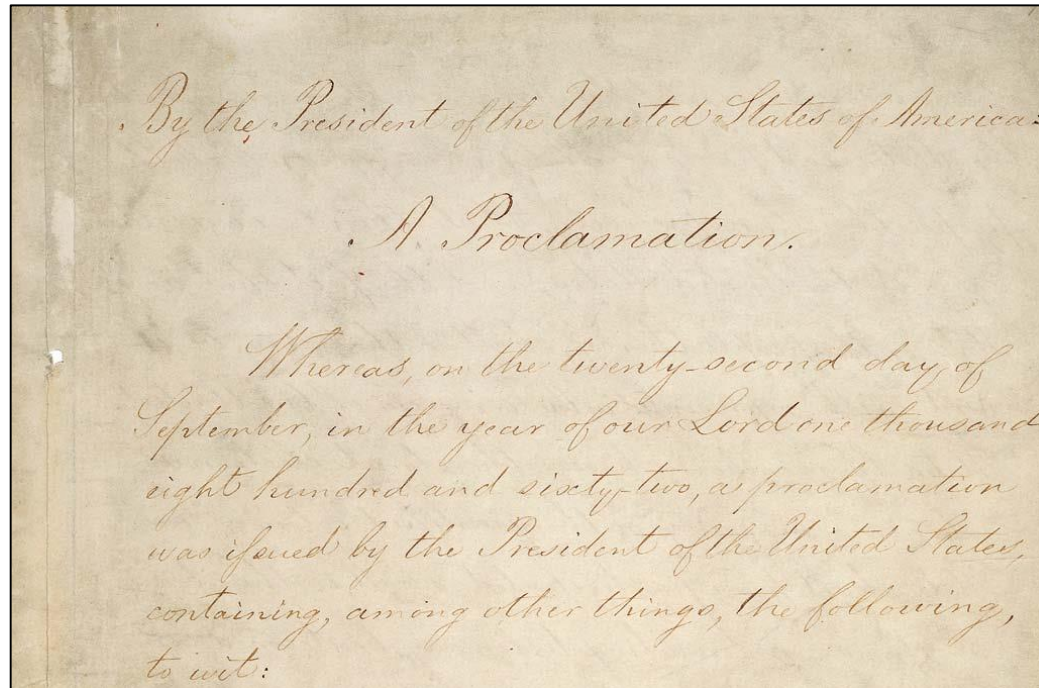 By the President of the United States of America:
A Proclamation.
Whereas, on the twenty-second day of
September, in the year of our Lord one thousand
eight hundred and sixty-two, a proclamation
was issued by the President of the United States,
containing, among other things, the following,
to wit: